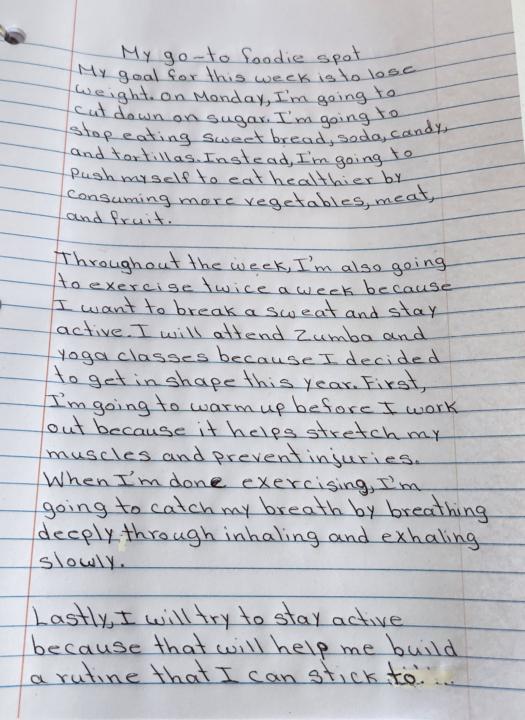 My go-to foodie spot
My goal for this week is to lose
weight. On Monday, I'm going to
cut down on sugar. I'm going to
stop eating sweet bread, soda, candy,
and tortillas. Instead, I'm going to
push myself to eat healthier by
consuming more vegetables, meat,
and fruit.
Throughout the week, I'm also going
to exercise twice a week because
I want to break a sweat and stay
active. I will attend Zumba and
yoga classes because I decided
to get in shape this year. First,
I'm going to warm up before I work
out because it helps stretch my
muscles and prevent injuries.
When I'm done exercising, I'm
going to catch my breath by breathing
deeply through inhaling and exhaling
slowly.
Lastly, I will try to stay active
because that will help me build
a rutine that I can stick to.